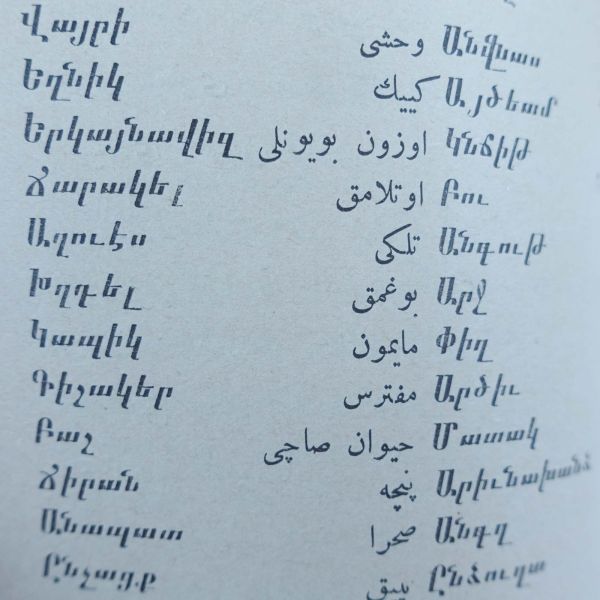 Վայրի وحشی Անզնաս
Եղնիկ كییك Այծեամ
Երկայնավիզ اوزون بویونلی Կնճիթ
Ճարակել اوتلامق Բու
Աղուէս تلكی Անգութ
Խղդել بوغمق Արջ
Կապիկ مایمون Փիղ
Գիշակեր مفترس Արծիւ
Բաշ حیوان صاچی Մատակ
Ճիրան پنچه Արիւնախանձ
Անապատ صحرا Անգղ
Ընչացք بیق Ընձուղտ